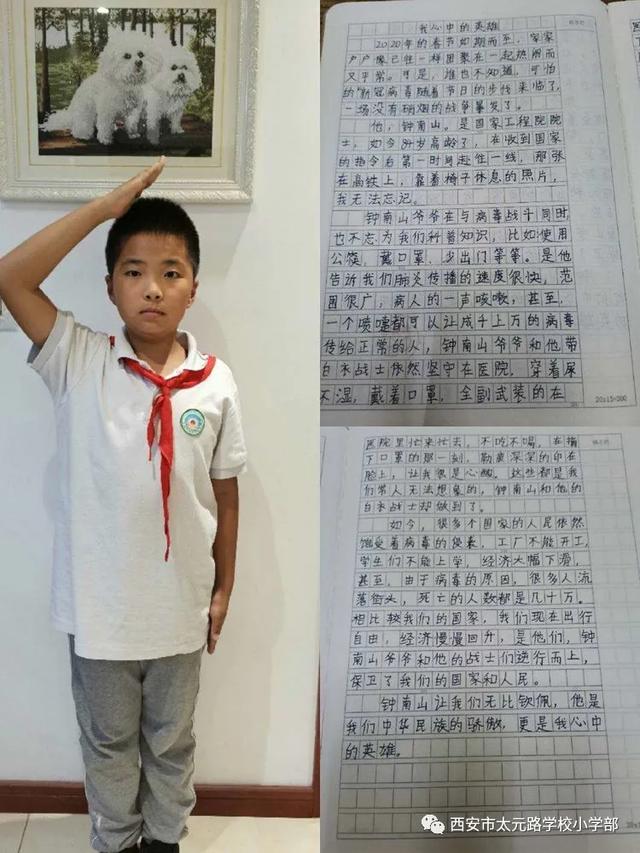 我心中的英雄
2020年的春节如期而至，家家
户户像已往一样团聚在一起热闹而
又平常。可是，谁也不知道，可怕
的"新冠病毒随着节日的步伐来临了，
一场没有硝烟的战争爆发了。
他，钟南山。是国家工程院院
士，如今84岁高龄了，在收到国家
的指令自第一时间赴往一线，那张
在高铁上，靠着椅子休息的照片，
我无法忘记。
钟南山爷爷在与病毒战斗同时
也不忘为我们科普知识，比如使用
公筷，戴口罩，少出门等等。是他
告诉我们肺炎传播的速度很快，范
围很广，病人的一声咳嗽，甚至，
一个喷嚏都可以让成千上万的病毒
传给正常的人，钟南山爷爷和他带
白衣战士依然坚守在医院，穿着尿
不湿，戴着口罩，全副武装的在
20×15=300
医院里忙来忙去，不吃不喝，在摘
下口罩的那一刻，勒痕深深的印在
脸上，让我很是心酸。这些都是我
们常人无法想象的，钟南山和他的
白衣战士却做到了。
如今，很多个国家的人民依然
饱受着病毒的侵袭，工厂不能开工，
学生们不能上学，经济大幅下滑，
甚至，由于病毒的原因，很多人流
落街头，死亡的人数都是几十万。
相比较我们的国家，我们现在出行
自由，经济慢慢回升，是他们，钟
南山爷爷和他的战士们逆行而上，
保卫了我们的国家和人民。
钟南山让我们无比钦佩，他是
我们中华民族的骄傲，更是我心中
的英雄。
西安市太元路学校小学部